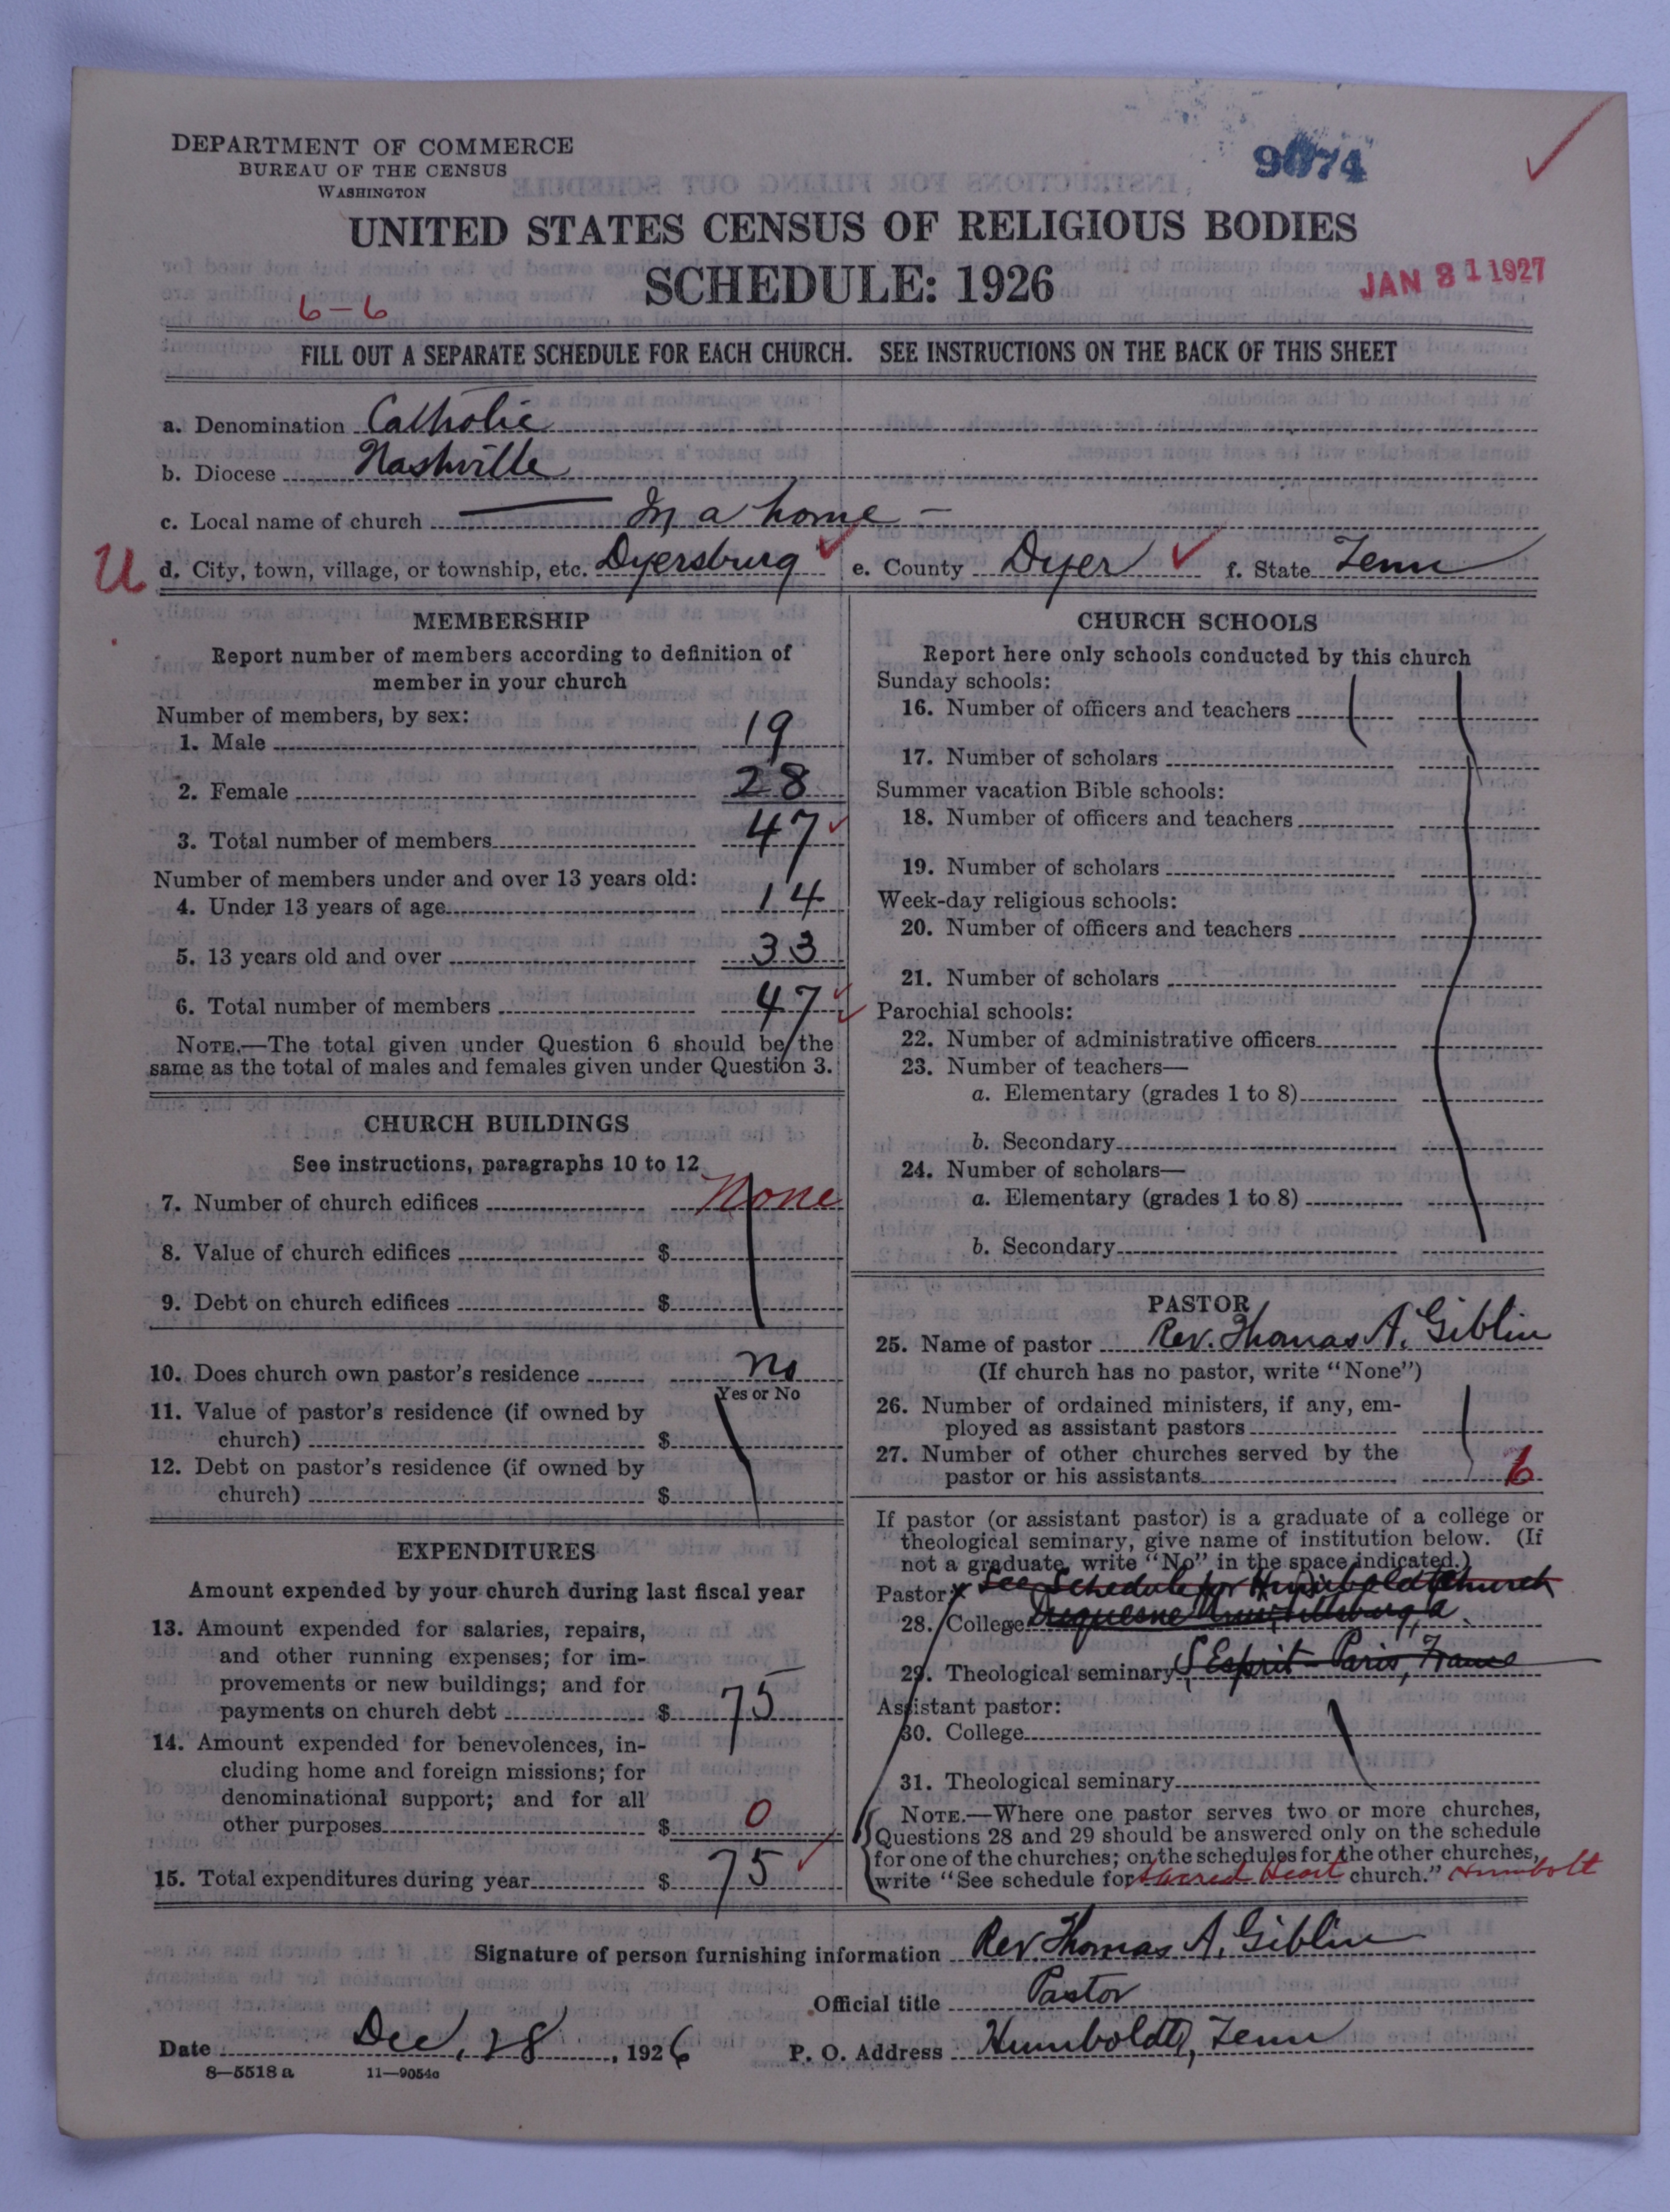 DEPARTMENT OF COMMERCE
BUREAU OF THE CENSUS
WASHINGTON
9074
UNITED STATES CENSUS OF RELIGIOUS BODIES
SCHEDULE: 1926
JAN 31 1927
6-6
FILL OUT A SEPARATE SCHEDULE FOR EACH CHURCH. SEE INSTRUCTIONS ON THE BACK OF THIS SHEET
a. Denomination Catholic
b. Diocese Nashville
c. Local name of church — In a home —
U d. City, town, village, or township, etc. Dyersburg e. County Dyer f. State Tenn
MEMBERSHIP
Report number of members according to definition of
member in your church
Number of members, by sex:
1. Male 19
2. Female 28
3. Total number of members 47
Number of members under and over 13 years old:
4. Under 13 years of age 14
5. 13 years old and over 33
6. Total number of members 47
NOTE.—The total given under Question 6 should be the
same as the total of males and females given under Question 3.
CHURCH BUILDINGS
See instructions, paragraphs 10 to 12
7. Number of church edifices None
8. Value of church edifices $
9. Debt on church edifices $
10. Does church own pastor's residence no
Yes or No
11. Value of pastor's residence (if owned by
church) $
12. Debt on pastor's residence (if owned by
church) $
EXPENDITURES
Amount expended by your church during last fiscal year
13. Amount expended for salaries, repairs,
and other running expenses; for im-
provements or new buildings; and for
payments on church debt $ 75
14. Amount expended for benevolences, in-
cluding home and foreign missions; for
denominational support; and for all
other purposes $ 0
15. Total expenditures during year $ 75
CHURCH SCHOOLS
Report here only schools conducted by this church
Sunday schools:
16. Number of officers and teachers
17. Number of scholars
Summer vacation Bible schools:
18. Number of officers and teachers
19. Number of scholars
Week-day religious schools:
20. Number of officers and teachers
21. Number of scholars
Parochial schools:
22. Number of administrative officers
23. Number of teachers—
a. Elementary (grades 1 to 8)
b. Secondary
24. Number of scholars—
a. Elementary (grades 1 to 8)
b. Secondary
PASTOR
25. Name of pastor Rev. Thomas A. Giblin
(If church has no pastor, write "None")
26. Number of ordained ministers, if any, em-
ployed as assistant pastors
27. Number of other churches served by the
pastor or his assistants 6
If pastor (or assistant pastor) is a graduate of a college or
theological seminary, give name of institution below. (If
not a graduate, write "No" in the space indicated.)
Pastor: x See Schedule for Humboldt Church
28. College Duquesne
29. Theological seminary S Esprit - Paris, France
Assistant pastor:
30. College
31. Theological seminary
NOTE.—Where one pastor serves two or more churches,
Questions 28 and 29 should be answered only on the schedule
for one of the churches; on the schedules for the other churches,
write "See schedule for Sacred Heart church." Humbolt
Signature of person furnishing information Rev. Thomas A. Giblin
Official title Pastor
Date Dec. 28, 1926 P. O. Address Humboldt, Tenn
8—5518 a 11—9054c